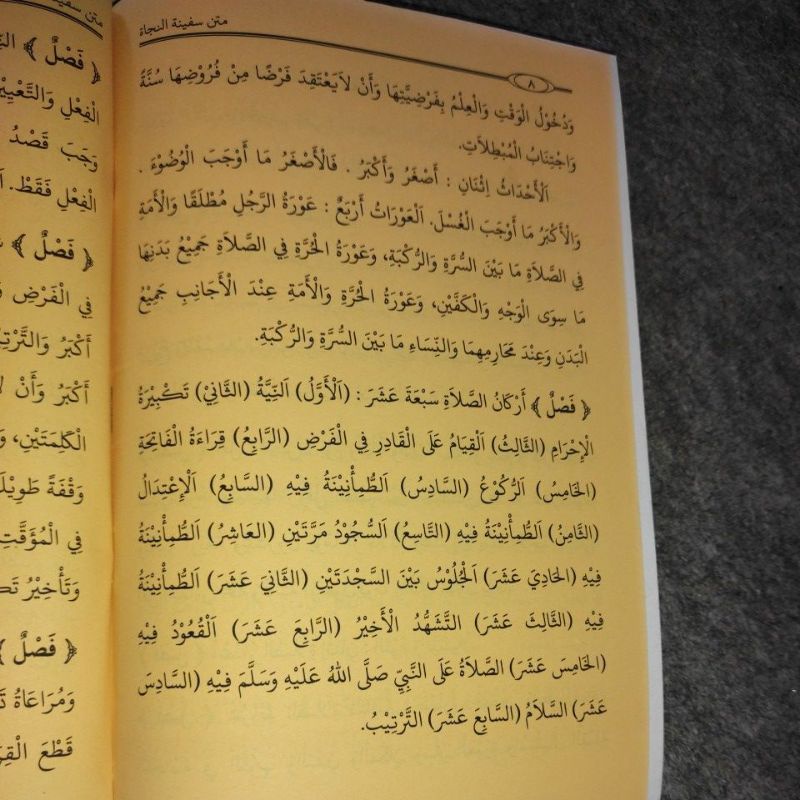 متن سفينة النجاة
٨
وَدُخُوْلُ الْوَقْتِ وَالْعِلْمُ بِفَرْضِيَّتِهَا وَأَنْ لاَيَعْتَقِدَ فَرْضًا مِنْ فُرُوْضِهَا سُنَّةً
وَاجْتِنَابُ الْمُبْطِلاَتِ.
اَلْأَحْدَاثُ اِثْنَانِ : أَصْغَرُ وَأَكْبَرُ . فَالْأَصْغَرُ مَا أَوْجَبَ الْوُضُوْءَ .
وَالْأَكْبَرُ مَا أَوْجَبَ الْغُسْلَ. اَلْعَوْرَاتُ أَرْبَعٌ : عَوْرَةُ الرَّجُلِ مُطْلَقًا وَالْأَمَةِ
فِي الصَّلاَةِ مَا بَيْنَ السُّرَّةِ وَالرُّكْبَةِ، وَعَوْرَةُ الْحُرَّةِ فِي الصَّلاَةِ جَمِيْعُ بَدَنِهَا
مَا سِوَى الْوَجْهِ وَالْكَفَّيْنِ، وَعَوْرَةُ الْحُرَّةِ وَالْأَمَةِ عِنْدَ الْأَجَانِبِ جَمِيْعُ
الْبَدَنِ وَعِنْدَ مَحَارِمِهِمَا وَالنِّسَاءِ مَا بَيْنَ السُّرَّةِ وَالرُّكْبَةِ.
﴿ فَصْلٌ ﴾ أَرْكَانُ الصَّلاَةِ سَبْعَةَ عَشَرَ : (اَلْأَوَّلُ) اَلنِّيَّةُ (الثَّانِيْ) تَكْبِيْرَةُ
الْإِحْرَامِ (الثَّالِثُ) اَلْقِيَامُ عَلَى الْقَادِرِ فِي الْفَرْضِ (الرَّابِعُ) قِرَاءَةُ الْفَاتِحَةِ
(الخَامِسُ) اَلرُّكُوْعُ (السَّادِسُ) اَلطُّمِأْنِيْنَةُ فِيْهِ (السَّابِعُ) اَلْإِعْتِدَالُ
(الثَّامِنُ) اَلطُّمِأْنِيْنَةُ فِيْهِ (التَّاسِعُ) اَلسُّجُوْدُ مَرَّتَيْنِ (العَاشِرُ) اَلطُّمِأْنِيْنَةُ
فِيْهِ (الحَادِيَ عَشَرَ) اَلْجُلُوْسُ بَيْنَ السَّجْدَتَيْنِ (الثَّانِيَ عَشَرَ) اَلطُّمِأْنِيْنَةُ
فِيْهِ (الثَّالِثَ عَشَرَ) التَّشَهُّدُ الْأَخِيْرُ (الرَّابِعَ عَشَرَ) اَلْقُعُوْدُ فِيْهِ
(الخَامِسَ عَشَرَ) الصَّلاَةُ عَلَى النَّبِيِّ صَلَّى اللهُ عَلَيْهِ وَسَلَّمَ فِيْهِ (السَّادِسَ
عَشَرَ) السَّلاَمُ (السَّابِعَ عَشَرَ) التَّرْتِيْبُ.
متن سفينة
﴿ فَصْلٌ ﴾
الْفِعْلِ وَالتَّعْيِيْ
وَجَبَ قَصْدُ
الْفِعْلِ فَقَطْ.
﴿ فَصْلٌ ﴾
فِي الْفَرْضِ
أَكْبَرُ وَالتَّرْتِ
أَكْبَرُ وَأَنْ
الْكَلِمَتَيْنِ،
وَقْفَةً طَوِيْلَ
فِي الْمُؤَقَّتِ
وَتَأْخِيْرُ
﴿ فَصْلٌ ﴾
وَمُرَاعَاةُ
قَطْعَ